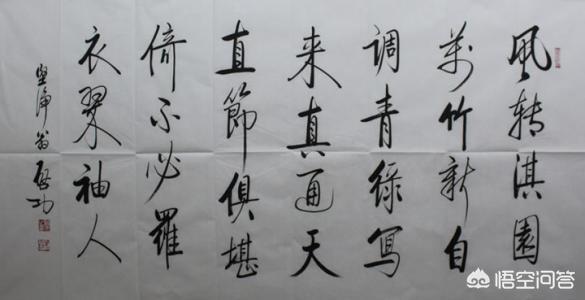 風轉淇園
萬竹新自
調青綠寫
來真通天
直節俱堪
倚不必羅
衣翠袖人
堅净翁启功
悟空问答